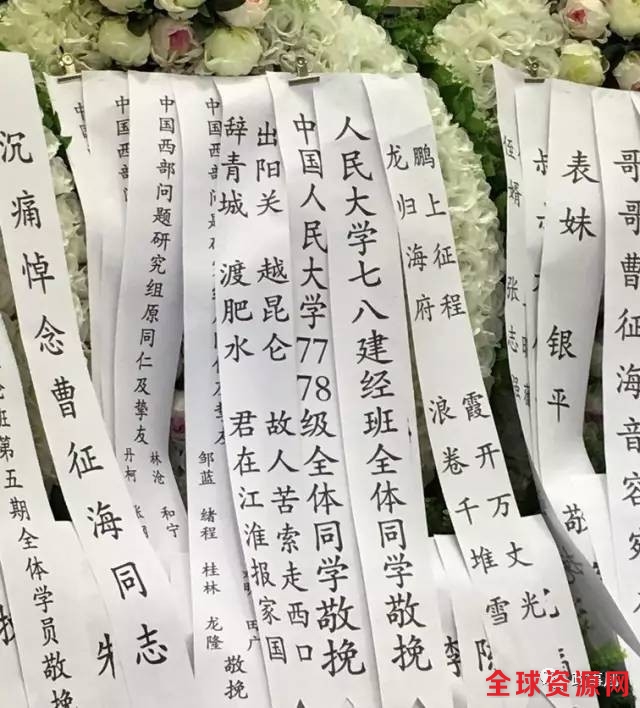 班第五期全体学员敬挽
沉痛悼念曹征海同志
中国
中国西部问
中国西部问题研究组原同仁及挚友
丹柯 林沧 和宁
中国西部问题
挚友
邹蓝 绪程 桂林 龙隆 敬挽
田广
出阳关 越昆仑 故人苦索走西口
辞青城 渡肥水 君在江淮报家国
中国人民大学77 78级全体同学敬挽
人民大学七八建经班全体同学敬挽
鹏上征程 霞开万丈光
龙归海府 浪卷千堆雪
侄婿 张志强
叔
表妹 银平 敬
哥哥曹征海音容宛
全球资源网